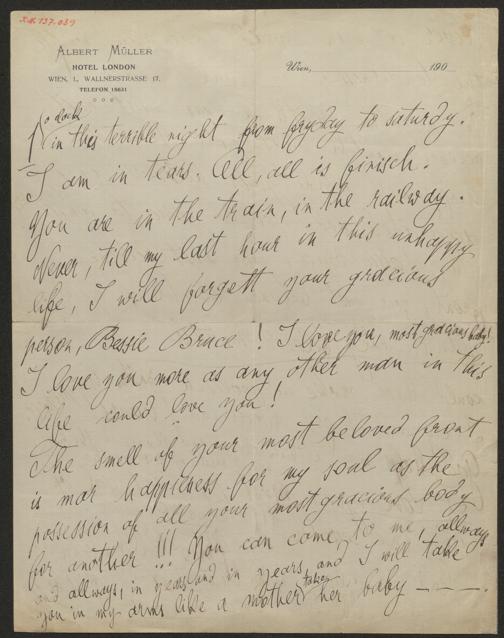 H.I.N. 137.089
ALBERT MÜLLER
HOTEL LONDON
WIEN, I., WALLNERSTRASSE 17.
TELEFON 18631
Wien, 190
1 o clock
in this terrible night from fryday to saturdy.
I am in tears. All, all is finisch.
You are in the train, in the railway.
Never, till my last hour in this unhappy
life, I will forgett your gracious
person, Bessie Bruce! I love you, most gracious baby!
I love you more as any other man in this
life could love you!
The smell of your most beloved front
is mor happiness for my soul as the
possession of all your most gracious body
for another!!! You can come to me, allways
and allways, in years and in years, and I will take
you in my arms like a mother takes her baby —